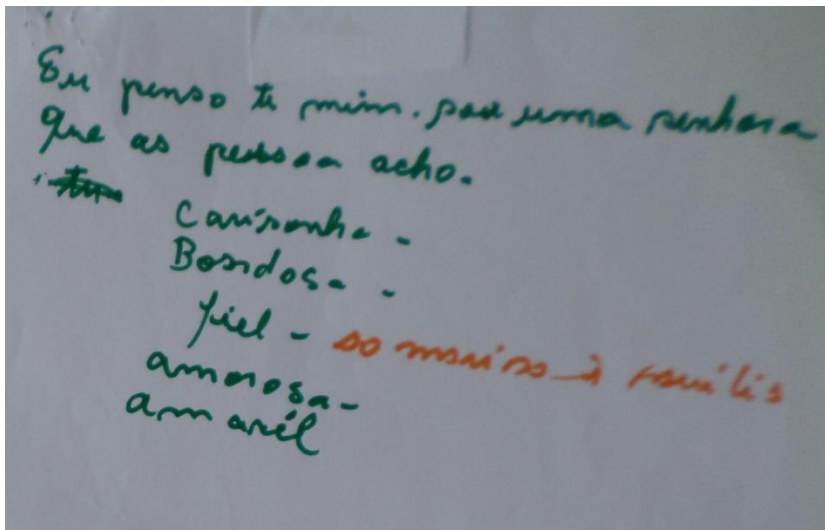 Eu penso ti mim. ser uma senhora
que as pessoa acho.
Carisonha -
Bosdosa -
fiel - ao marido à família
amorosa -
amavél